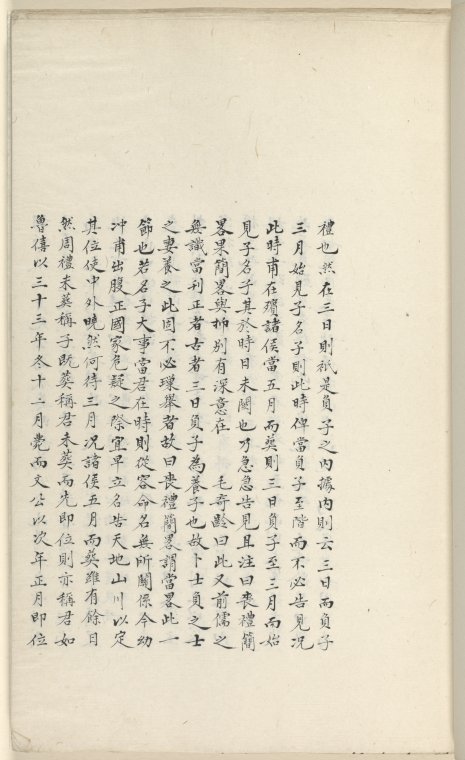 禮也然在三日則祇是負子之內據內則云三日而負子
三月始見子名子則此時俾當負子至階而不必告見况
此時甫在殯諸侯當五月而葬則三日負子至三月而始
見子名子其於時日未闕也乃急急告見且注曰喪禮簡
畧果簡畧與抑别有深意在　毛奇齡曰此又前儒之
無識當刊正者古者三日負子為養子也故卜士負之士
之妻養之此固不必瑣舉者故曰喪禮簡畧謂當畧此一
節也若名子大事當君在時則從容命名無所關係今幼
冲甫出股正國家危疑之際宜早立名告天地山川以定
其位使中外曉然何待三月况諸侯五月而葬雖有餘日
然周禮未葬稱子既葬稱君未葬而先即位則亦稱君如
魯僖以三十三年冬十二月薨而文公以次年正月即位